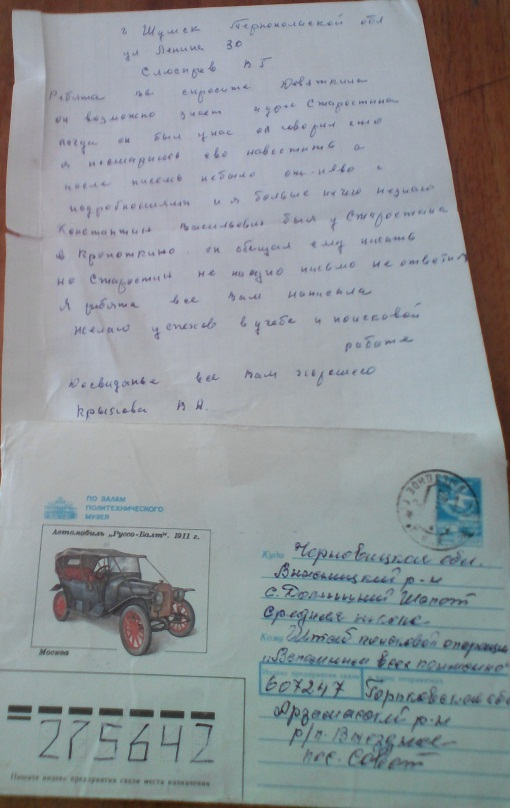 г Шумск Тернопольской обл
ул Ленина 30
Слюсарев В Г
Ребята вы спросите Девяткина
он возможно знает адрес Старостина
когда он был у нас он говорил что
я постараюсь его навестить а
после письмо небыло от него с
подробностями и я больше нечего незнаю
Константин Васильевич был у Старостина
в Кропоткино он обещал ему писать
но Старостин не на одно письмо не ответил
Я ребята все вам написала
Желаю успехов в учебе и поисковой
работе
Досвиданье все вам хорошего
Крылова В А.
ПО ЗАЛАМ
ПОЛИТЕХНИЧЕСКОГО
МУЗЕЯ
Автомобиль „Руссо-Балт“. 1911 г.
Москва
Куда Черновицкая обл.
Вижницкий р-н
с. Долишний Шепот
Средняя школа
Кому Штаб поисковой операции
„Вспомним всех поимённо“
607247 Горьковская обл
Арзамасский р-н
р/п. Выездное
пос. Совет
275642
Пишите индекс предприятия связи места назначения